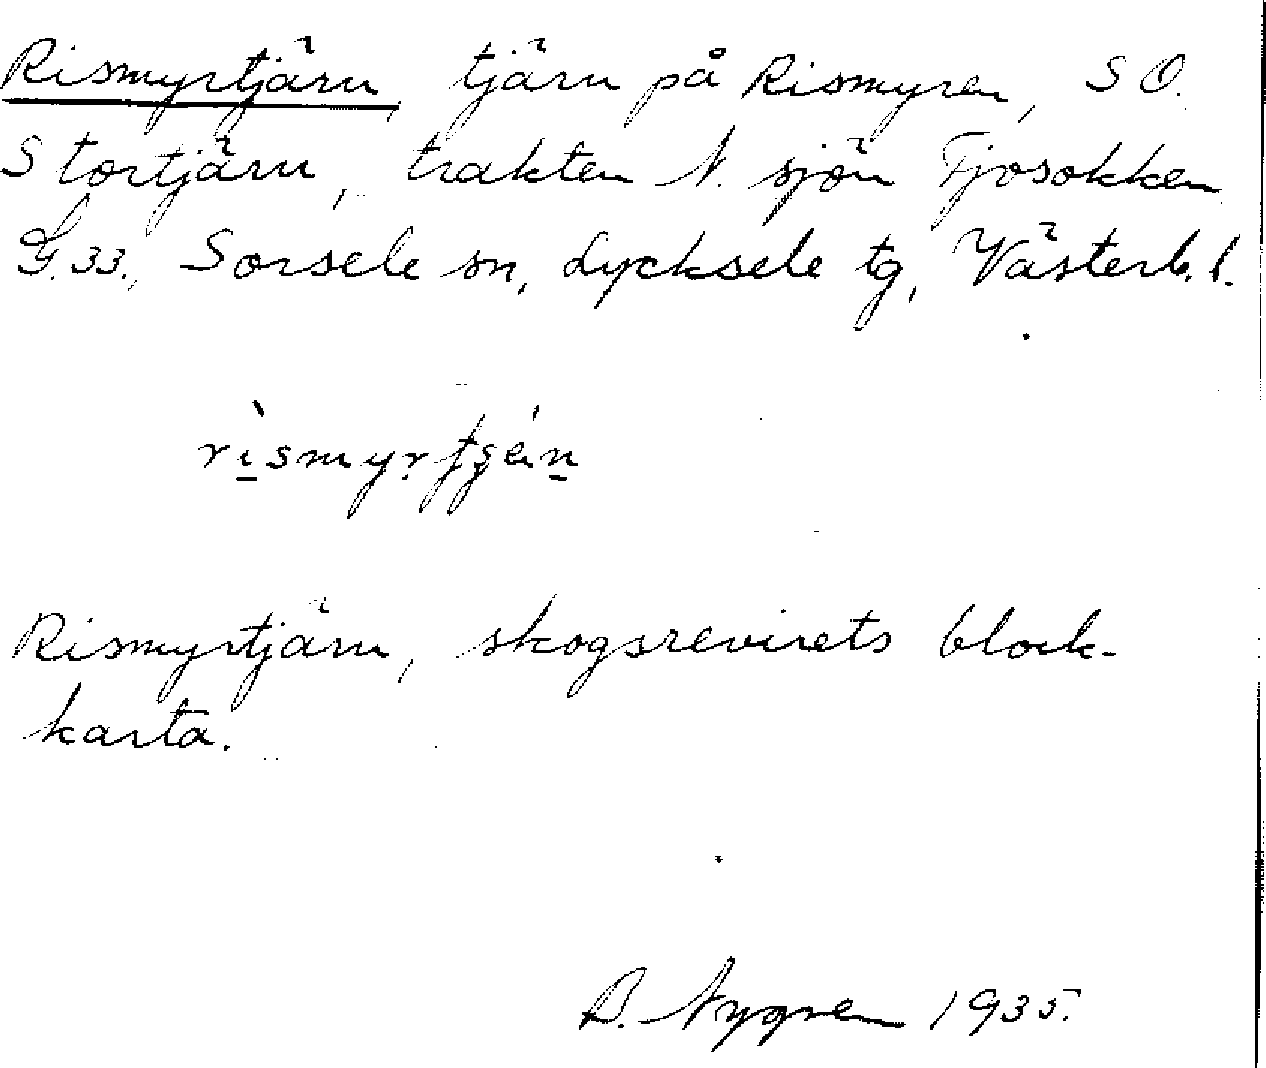 Rismyrtjärn, tjärn på Rismyren, SO.
Stortjärn, trakten N. sjön Tjosokken
G.33., Sorsele sn, Lycksele tg, Västerb. l.
Rismyrtjärn, skogsrevirets block-
karta.
B. Nygren 1935.